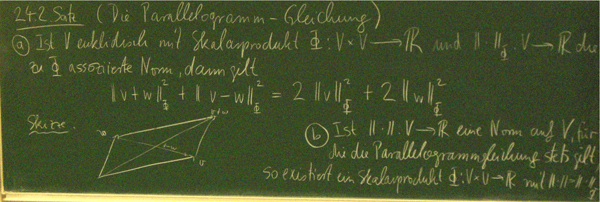 24.2 Satz (Die Parallelogramm-Gleichung)
ⓐ Ist V euklidisch mit Skalarprodukt Φ : V × V → ℝ und ‖·‖_Φ : V → ℝ die
zu Φ assoziierte Norm, dann gilt
‖v+w‖²_Φ + ‖v-w‖²_Φ = 2 ‖v‖²_Φ + 2 ‖w‖²_Φ
Skizze.
v+w
w
v-w
v
ⓑ Ist ‖·‖ : V → ℝ eine Norm auf V, für
die die Parallelogrammgleichung stets gilt
so existiert ein Skalarprodukt Φ : V × V → ℝ mit ‖·‖=‖·‖_Φ